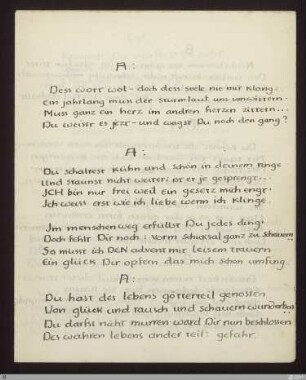 A:
Dess wort wol - doch dess seele nie mir klang:
Ein jahrlang mun der sturmlaut uns umwittern.
Muss ganz ein herz im andren herzen zittern...
Du weisst es jezt - und wagst Du noch den gang?
A:
Du schaltest kühn und schön in deinem ringe
Und staunst nicht weiter: ist er je gesprengt...
ICH bin nur frei weil ein gesetz mich engt.
Ich weiss erst wie ich liebe wenn ich klinge.
Im menschenweg erfüllst Du jedes ding.
Doch fehlt Dir noch: vorm schicksal ganz zu schauern
So musst ich DEN advent mit leisem trauern
Ein glück Dir opfern das mich schon umfing.
A:
Du hast des lebens götterteil genossen
Von glück und rausch und schauern wunderbar
Du darfst nicht murren ward Dir nun beschlossen
Des wahren lebens ander teil: gefahr.